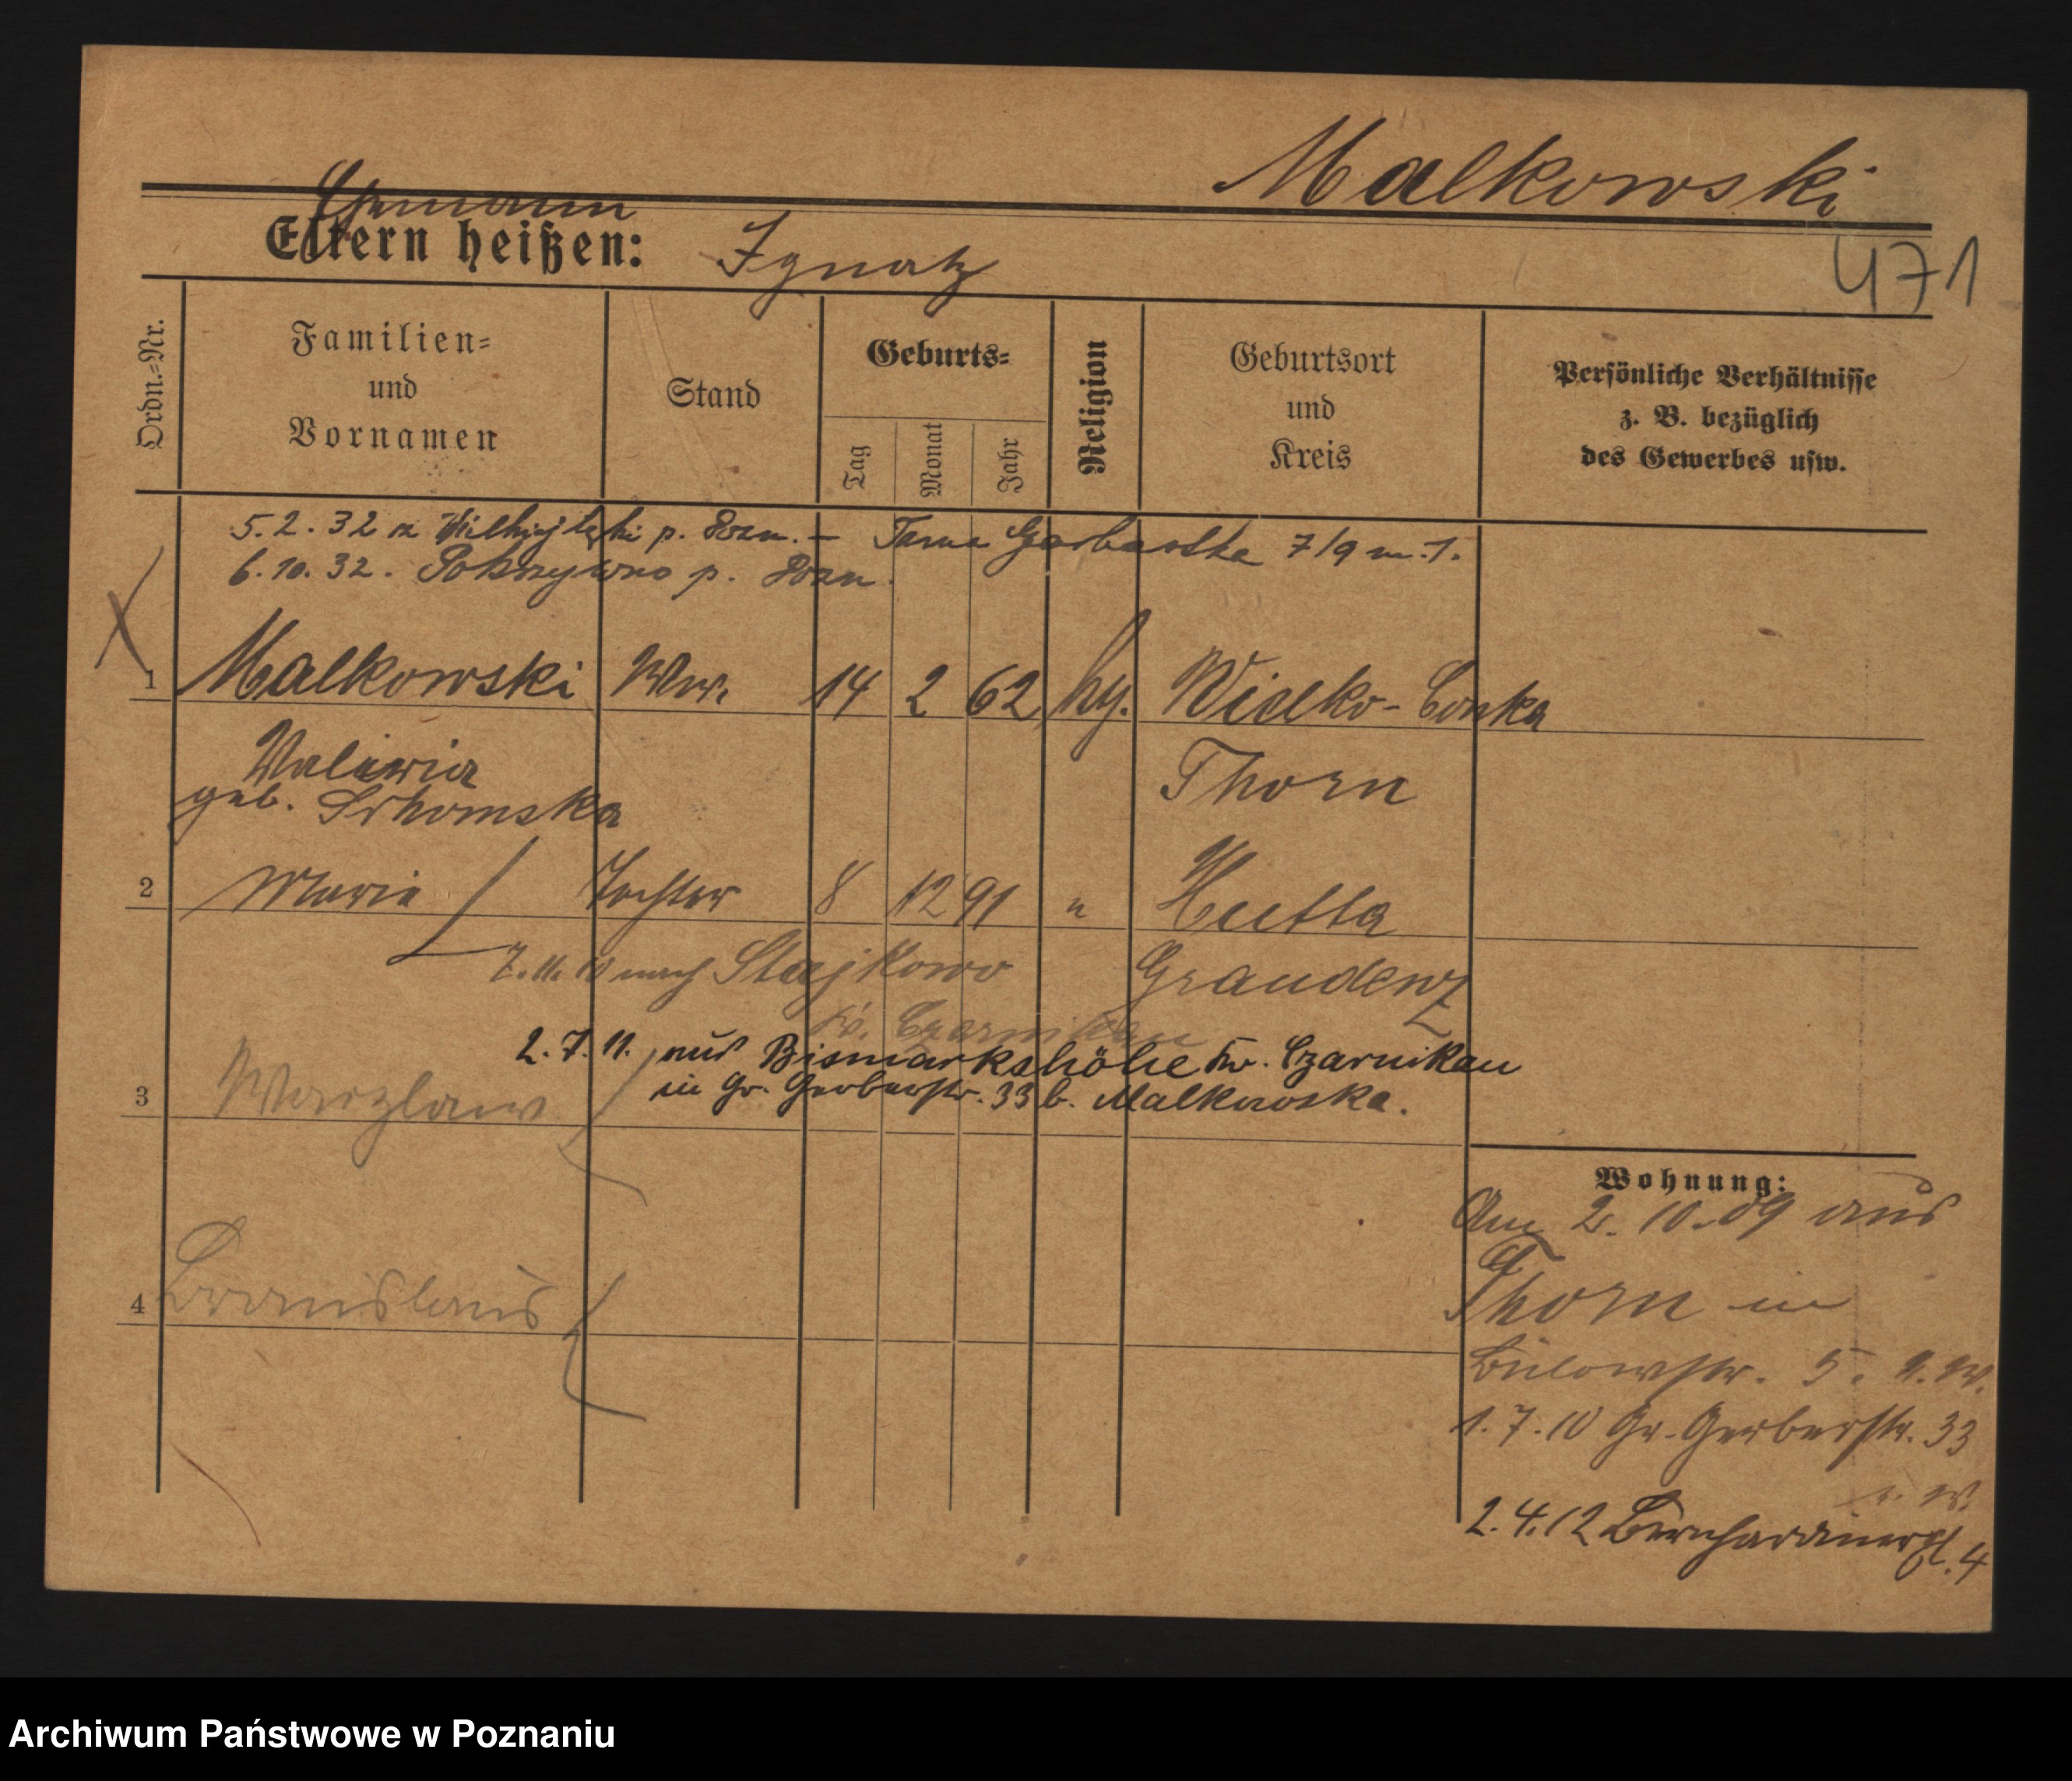 Malkowski
Ehemann
Eltern heißen: Ignatz
471
Ordn.-Nr.
Familien-
und
Vornamen
Stand
Geburts-
Tag
Monat
Jahr
Religion
Geburtsort
und
Kreis
Persönliche Verhältnisse
z. B. bezüglich
des Gewerbes usw.
5.2.32 p. Pozn. – Garbarska 7/9 m. 1.
6.10.32. Pokrzywno p. Pozn.
1 Malkowski Wwe. 14 2 62 Wielko-Lonka
geb.
Thorn
2 Maria Tochter 8 12 91 " Hutta
7.11.10 nach Stajkowo Graudenz
Kr. Czarnikau
2.7.11. aus Bismarkshöhe Kr. Czarnikau
3 in Gr. Gerberstr. 33 b. Malkowska.
4
Wohnung:
Am 2.10.09 aus
Thorn in
Bülowstr. 5.
1.7.10 Gr. Gerberstr. 33
2.4.12 Bernhardinerpl. 4
Archiwum Państwowe w Poznaniu